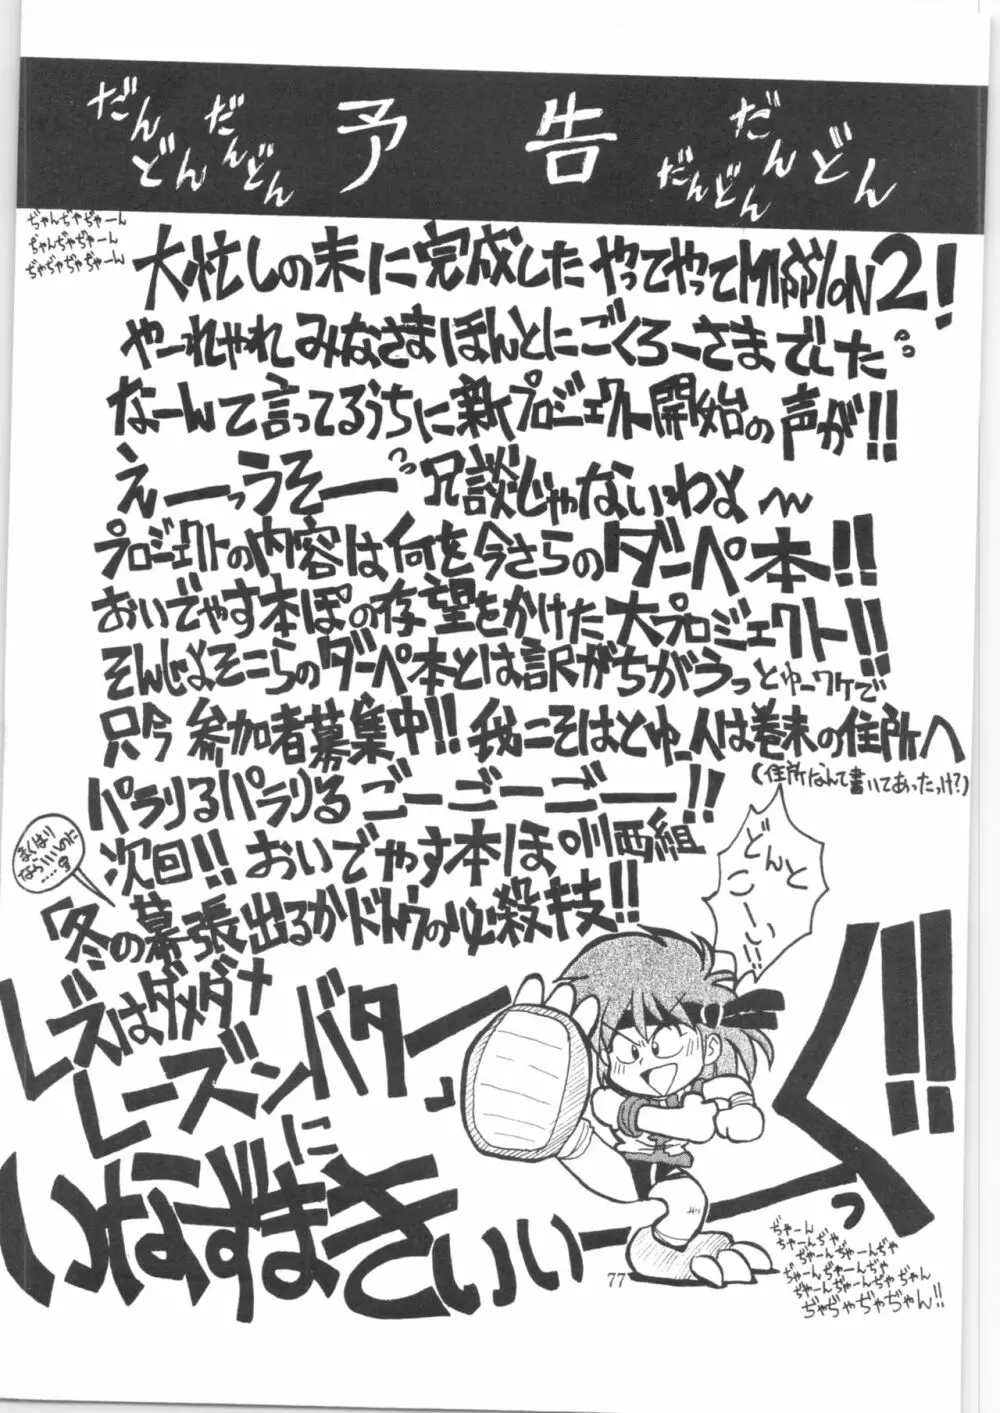 だんどん
だんどん
予告
だんどん
だんどん
ぢゃんぢゃぢゃーん
ぢゃんぢゃぢゃーん
ぢゃぢゃぢゃぢゃーん
大忙しの末に完成したやってやってMISSION2!
やーれやれみなさまほんとにごくろーさまでしたっ
なーんて言ってるうちに新プロジェクト開始の声が!!
えーーっうそーーっ冗談じゃないわよ〜
プロジェクトの内容は何を今さらのダーペ本!!
おいでやす本ぽの存望をかけた大プロジェクト!!
そんじょそこらのダーペ本とは訳がちがうっとゆーワケで
只今参加者募集中!!我こそはとゆー人は巻末の住所へ
(住所なんて書いてあったっけ?)
パラりるパラりるゴーゴーゴーー!!
次回!!おいでやす本ぽ川西組
まくはり
ならいいのに
....
「冬の幕張出るかドトウの必殺技!!
レズはダメダメ
レーズンバターに
いなずまきぃぃーっく!!
どんと
こーい!!
77
ぢゃーん
ぢゃーんぢゃ
ぢゃーんぢゃーんぢゃ
ぢゃーんぢゃーんぢゃ
ぢゃーんぢゃーんぢゃぢゃん
ぢゃぢゃぢゃぢゃん!!